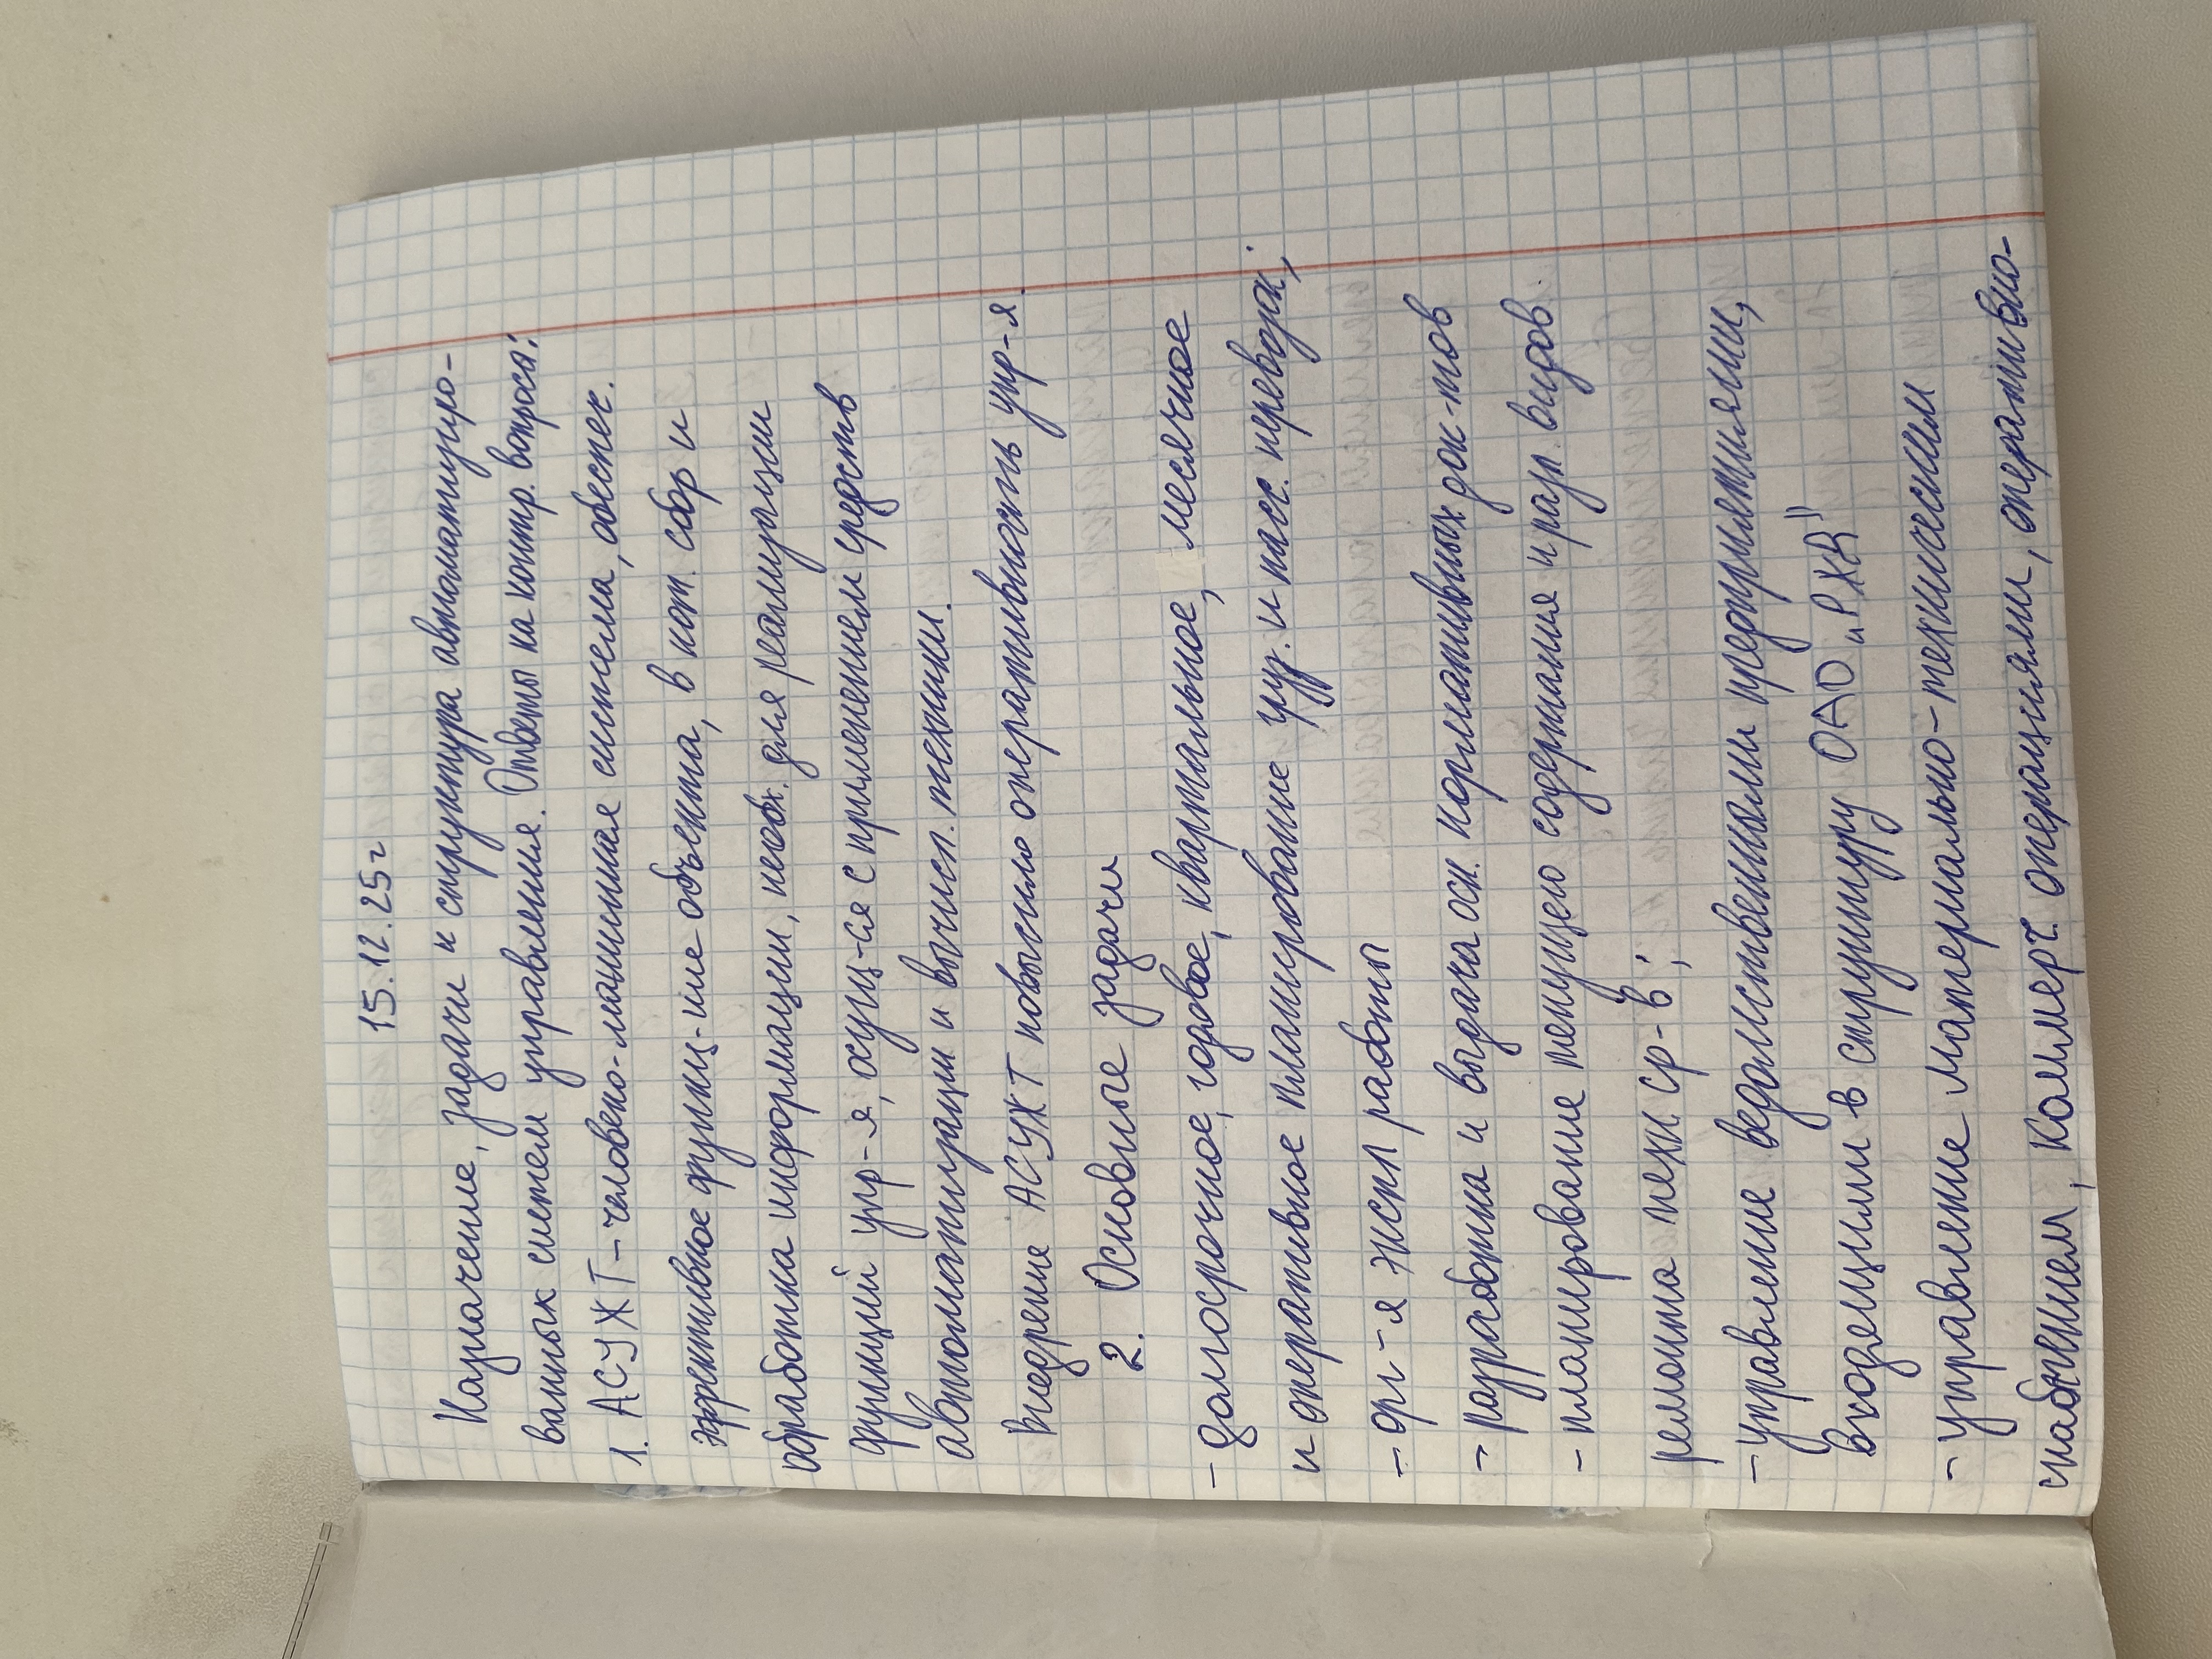 15.12.25г
Назначение, задачи и структура автоматизиро-
ванных систем управления. Ответы на контр. вопросы:
1. АСУЖТ - человеко-машинная система, обеспеч.
эффективное функц-ние объекта, в кот. сбор и
обработка информации, необх. для реализации
функций упр-я, осущ-ся с применением средств
автоматизации и вычисл. техники.
Внедрение АСУЖТ повысило оперативность упр-я.
2. Основные задачи
- долгосрочное, годовое, квартальное, месячное
и оперативное планирование груз. и пасс. перевозок;
- орг-я экспл работы
- разработка и выдача осн. нормативных док-тов
- планирование текущего содержания и разл. видов
ремонта техн ср-в;
- управление ведомственными предприятиями,
входящими в структуру ОАО „РЖД"
- управление материально-техническим
снабжением, коммерч. операциями, оперативно-